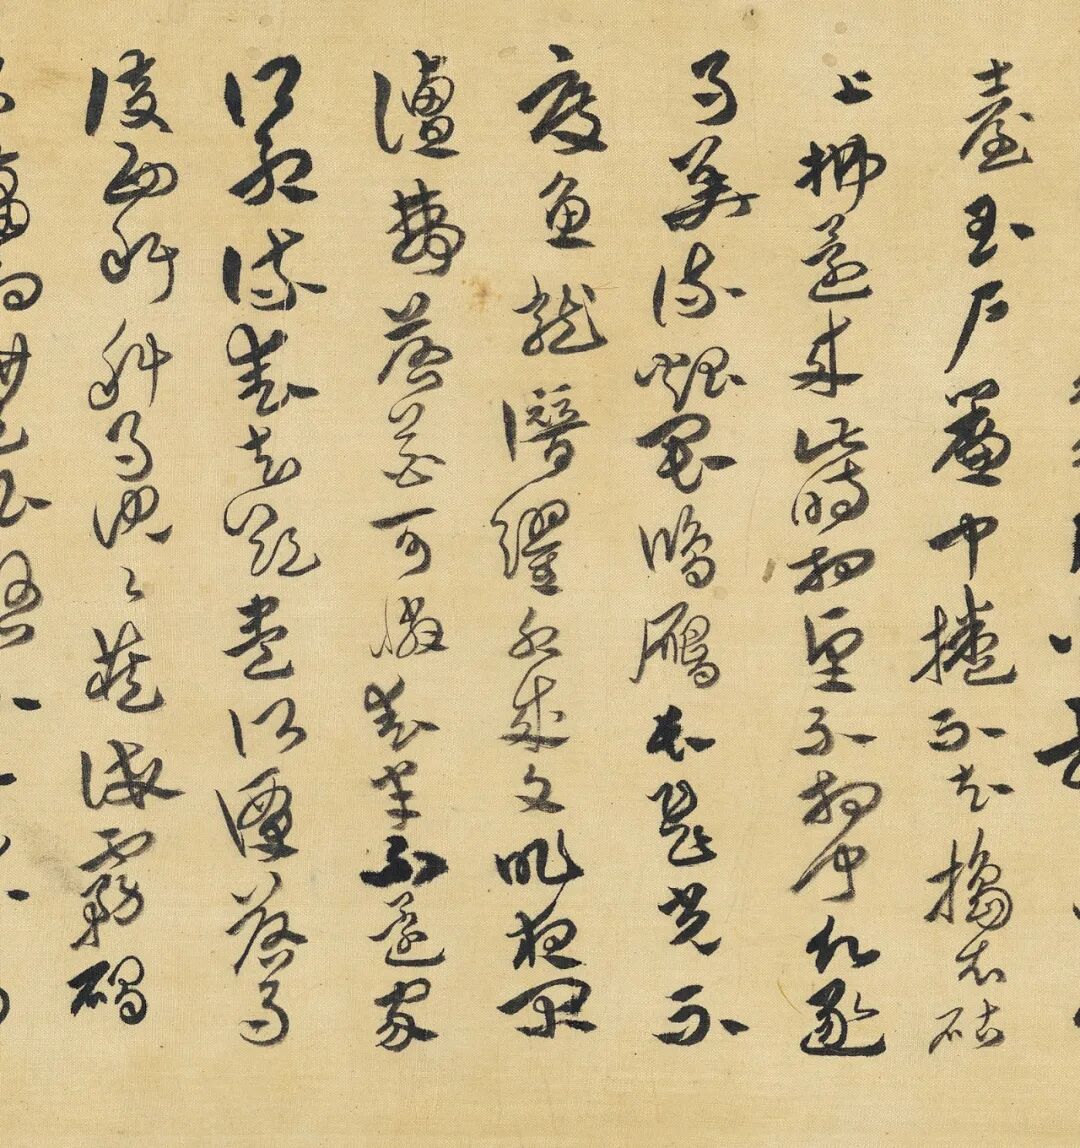 臺玉戶簾中捲不去搗衣砧
上拂還來此時相望不相聞願逐
月華流照君鴻雁長飛光不
度魚龍潛躍水成文昨夜閒
潭夢落花可憐春半不還家
江水流春去欲盡江潭落月
復西斜斜月沉〻藏海霧碣